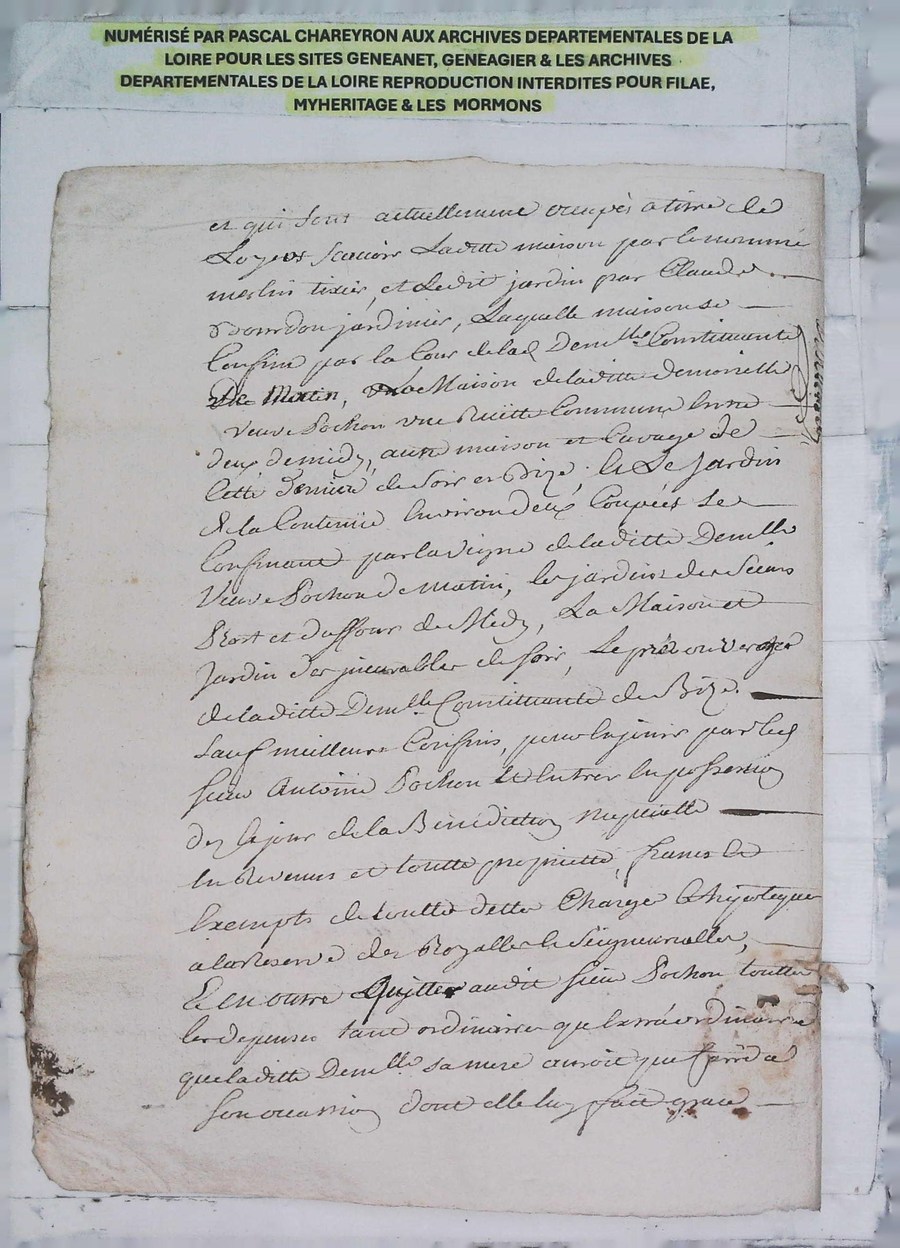 NUMÉRISÉ PAR PASCAL CHAREYRON AUX ARCHIVES DEPARTEMENTALES DE LA
LOIRE POUR LES SITES GENEANET, GENEAGIER & LES ARCHIVES
DEPARTEMENTALES DE LA LOIRE REPRODUCTION INTERDITES POUR FILAE,
MYHERITAGE & LES MORMONS
et qui sont actuellement occupés a titre de
Loyers scavoir Laditte maison par le nommé
merlin tixier, et Ledit jardin par Claude
Bourdon jardinier, Laquelle maison se
Confine par la Cour de lad Demlle Constituante
De Matin, Maison de laditte demoiselle
veuve Pochon une Ruëtte Commune Entre
deux de midy, autre maison et Cuvage de
Cette Derniere de Soir et Bize, & Le Jardin
de la Contenüe Environ deux Coupées Se
Confinant par la vigne de laditte Demlle
Veuve Pochon De Matin, les jardins des Sieurs
et Duffour de Midy, La Maison et
Jardin des jncurables de soir, Le pré ou verger
de laditte Demlle Constituante de Bize.
Sauf meilleurs Confins, pour En jouir par led
sieur Antoine Pochon Et Entrer En possession
dez le jour de la Bénédiction nuptialle
En Revenus et toutte proprietté, francs Et
Exempts de toutte dette Charge & hipoteques
a la Reserve des Royalles & Seigneurialles,
Et en outre Quitter audit sieur Pochon touttes
les depenses tant ordinaires que Extraordinaires
que laditte Demlle sa mere auroit pu faire a
son occasion dont elle luy fait grace